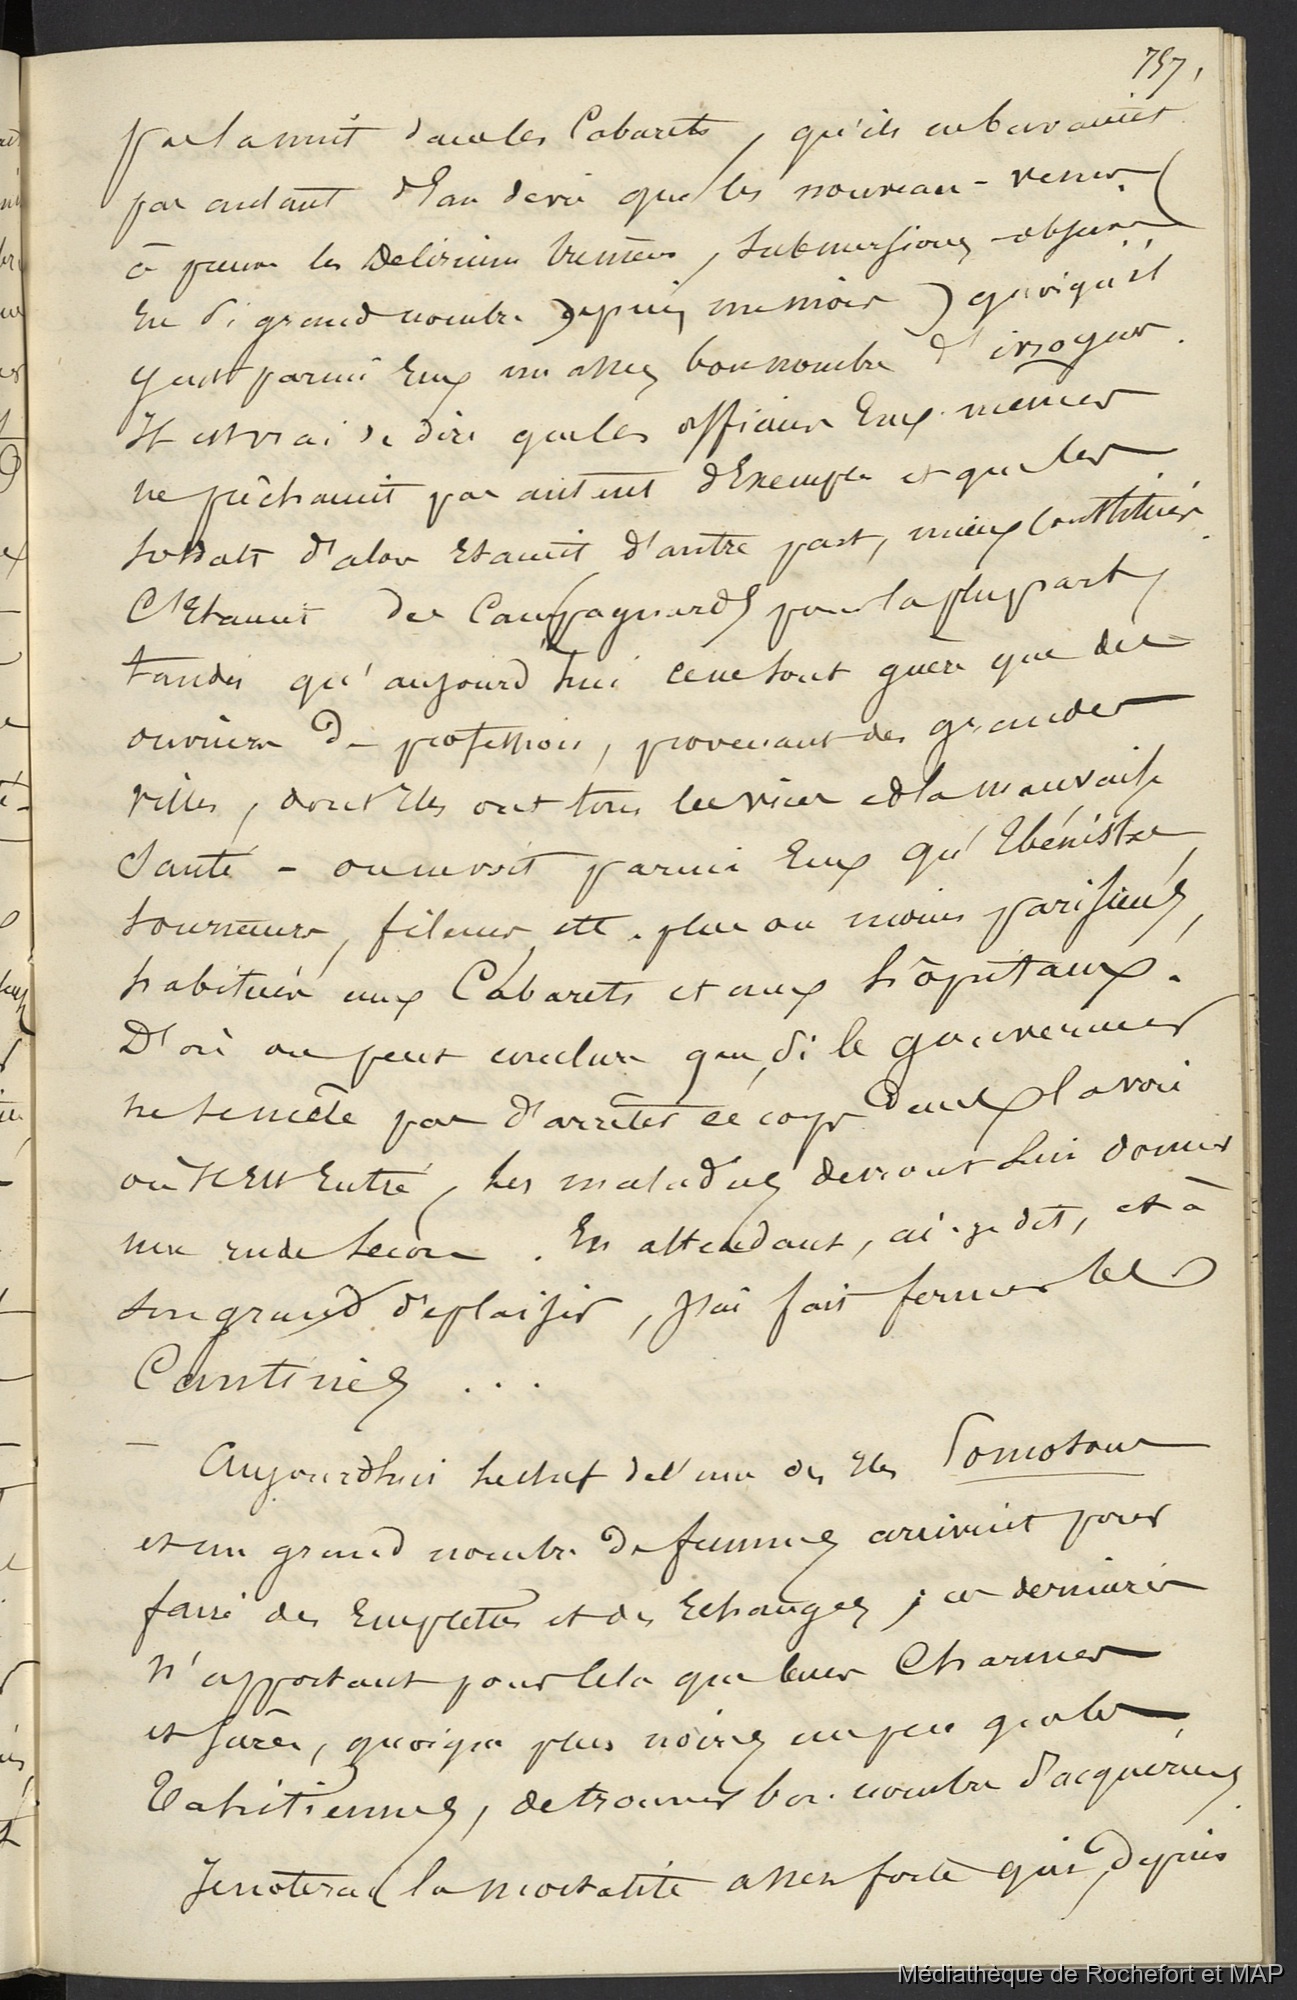 757.
pas la nuit dans les Cabarets, qu'ils ne buvaient
pas autant d'Eau de vie que les nouveau-venus
à peine les Delirium tremens, submersions - absinthe
En si grand nombre depuis, me moins ) quoiqu'il
y eut parmi Eux un assez bon nombre d'ivrognes.
Il est vrai de dire que les officiers Eux-mêmes
ne prêchaient pas autant d'Exemple et que les
soldats d'alors Etaient d'autre part, mieux constitués.
C'Etaient des Campagnards pour la plupart,
tandis qu'aujourd'hui ce ne sont guère que des
ouvriers de profession, provenant des grandes
villes, dont Ils ont tous les vices et la mauvaise
santé - on ne voit parmi Eux qu'Ebénistes,
tourneurs, fileurs, etc. plus ou moins parisiens,
habitués aux Cabarets et aux hôpitaux.
D'où on peut conclure que, si le gouverneur
ne se mêle pas d'arrêter ce corps dans la voie
où Il Est Entré, les maladies devront lui donner
une rude leçon. En attendant, ai-je dit, et à
son grand déplaisir, j'ai fait fermer les
Cantines ...
- Aujourd'hui le chef de l'une des Iles Pomotous
et un grand nombre de femmes arrivent pour
faire des Emplettes et des Echanges ; ces dernières
n'apportant pour cela que leurs Charmes
et sûres, quoique plus noires un peu que les
Tahitiennes, de trouver bon nombre d'acquéreurs.
Je noterai la mortalité assez forte qui, depuis
Médiathèque de Rochefort et MAP